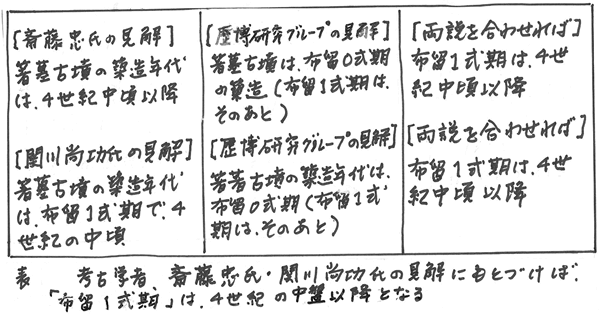 [斎藤忠氏の見解]
箸墓古墳の築造年代
は、4世紀中頃以降
[歴博研究グループの見解]
箸墓古墳は、布留0式期
の築造(布留1式期は、
そのあと)
[両説を合わせれば]
布留1式期は、4世
紀中頃以降
[関川尚功氏の見解]
箸墓古墳の築造年代
は、布留1式期で、4
世紀の中頃
[歴博研究グループの見解]
箸墓古墳の築造年代は、
布留0式期(布留1式
期は、そのあと)
[両説を合わせれば]
布留1式期は、4世
紀中頃以降
表 考古学者、斎藤忠氏・関川尚功氏の見解にもとづけば、
「布留1式期」は、4世紀の中盤以降となる